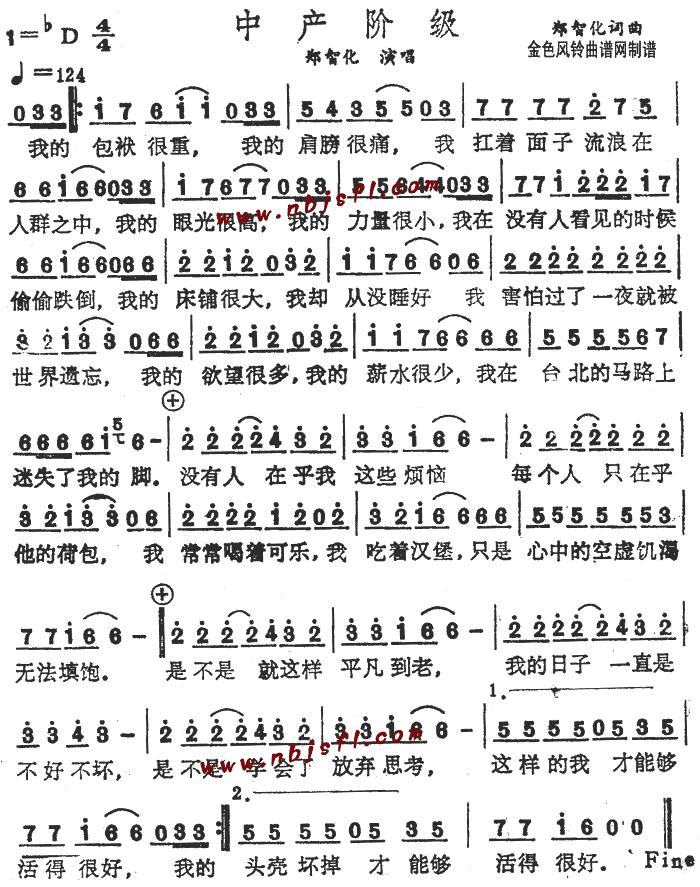 1=♭D 4/4
中产阶级
郑智化词曲
♩=124
郑智化 演唱
金色风铃曲谱网制谱
033 1 7 6 1 1 033 5 4 3 5 5 03 7 7 7 7 2 7 5
我的 包袱 很重， 我的 肩膀 很痛， 我 扛着 面子 流浪在
6 6 1 6 6 033 1 7 6 7 7 033 5 5 3 4 4 033 7 7 1 2 2 2 1 7
人群之中，我的 眼光很高，我的 力量很小，我在 没有人看见的时候
www.nbjsfl.com
6 6 1 6 6 066 2 2 1 2 0 3 2 1 1 7 6 6 06 2 2 2 2 2 2 2 2
偷偷跌倒，我的 床铺很大，我却 从没睡好 我 害怕过了一夜就被
3 2 1 3 3 066 2 2 1 2 0 3 2 1 1 7 6 6 6 6 5 5 5 5 5 6 7
世界遗忘， 我的 欲望很多，我的 薪水很少，我在 台北的马路上
6 6 6 6 1 6 - 2 2 2 2 4 3 2 3 3 1 6 6 - 2 2 2 2 2 2 2
迷失了我的 脚。 没有人 在乎我 这些 烦恼 每个人 只在乎
3 2 1 3 3 0 6 2 2 2 2 1 2 0 2 3 2 1 6 6 6 6 5 5 5 5 5 5 3
他的荷包， 我 常常喝着可乐，我 吃着汉堡，只是 心中的空虚饥渴
7 7 1 6 6 - 2 2 2 2 4 3 2 3 3 1 6 6 - 2 2 2 2 2 4 3 2
无法填饱。 是不是 就这样 平凡到老， 我的日子 一直是
1.
3 3 4 3 - 2 2 2 2 4 3 2 3 3 1 6 6 - 5 5 5 5 0 5 3 5
不好不坏， 是不是 学会了 放弃 思考， 这样的我 才能够
www.nbjsfl.com
2.
7 7 1 6 6 033 5 5 5 5 0 5 3 5 7 7 1 6 0 0
活得 很好， 我的 头壳 坏掉 才 能够 活得 很好。 Fine